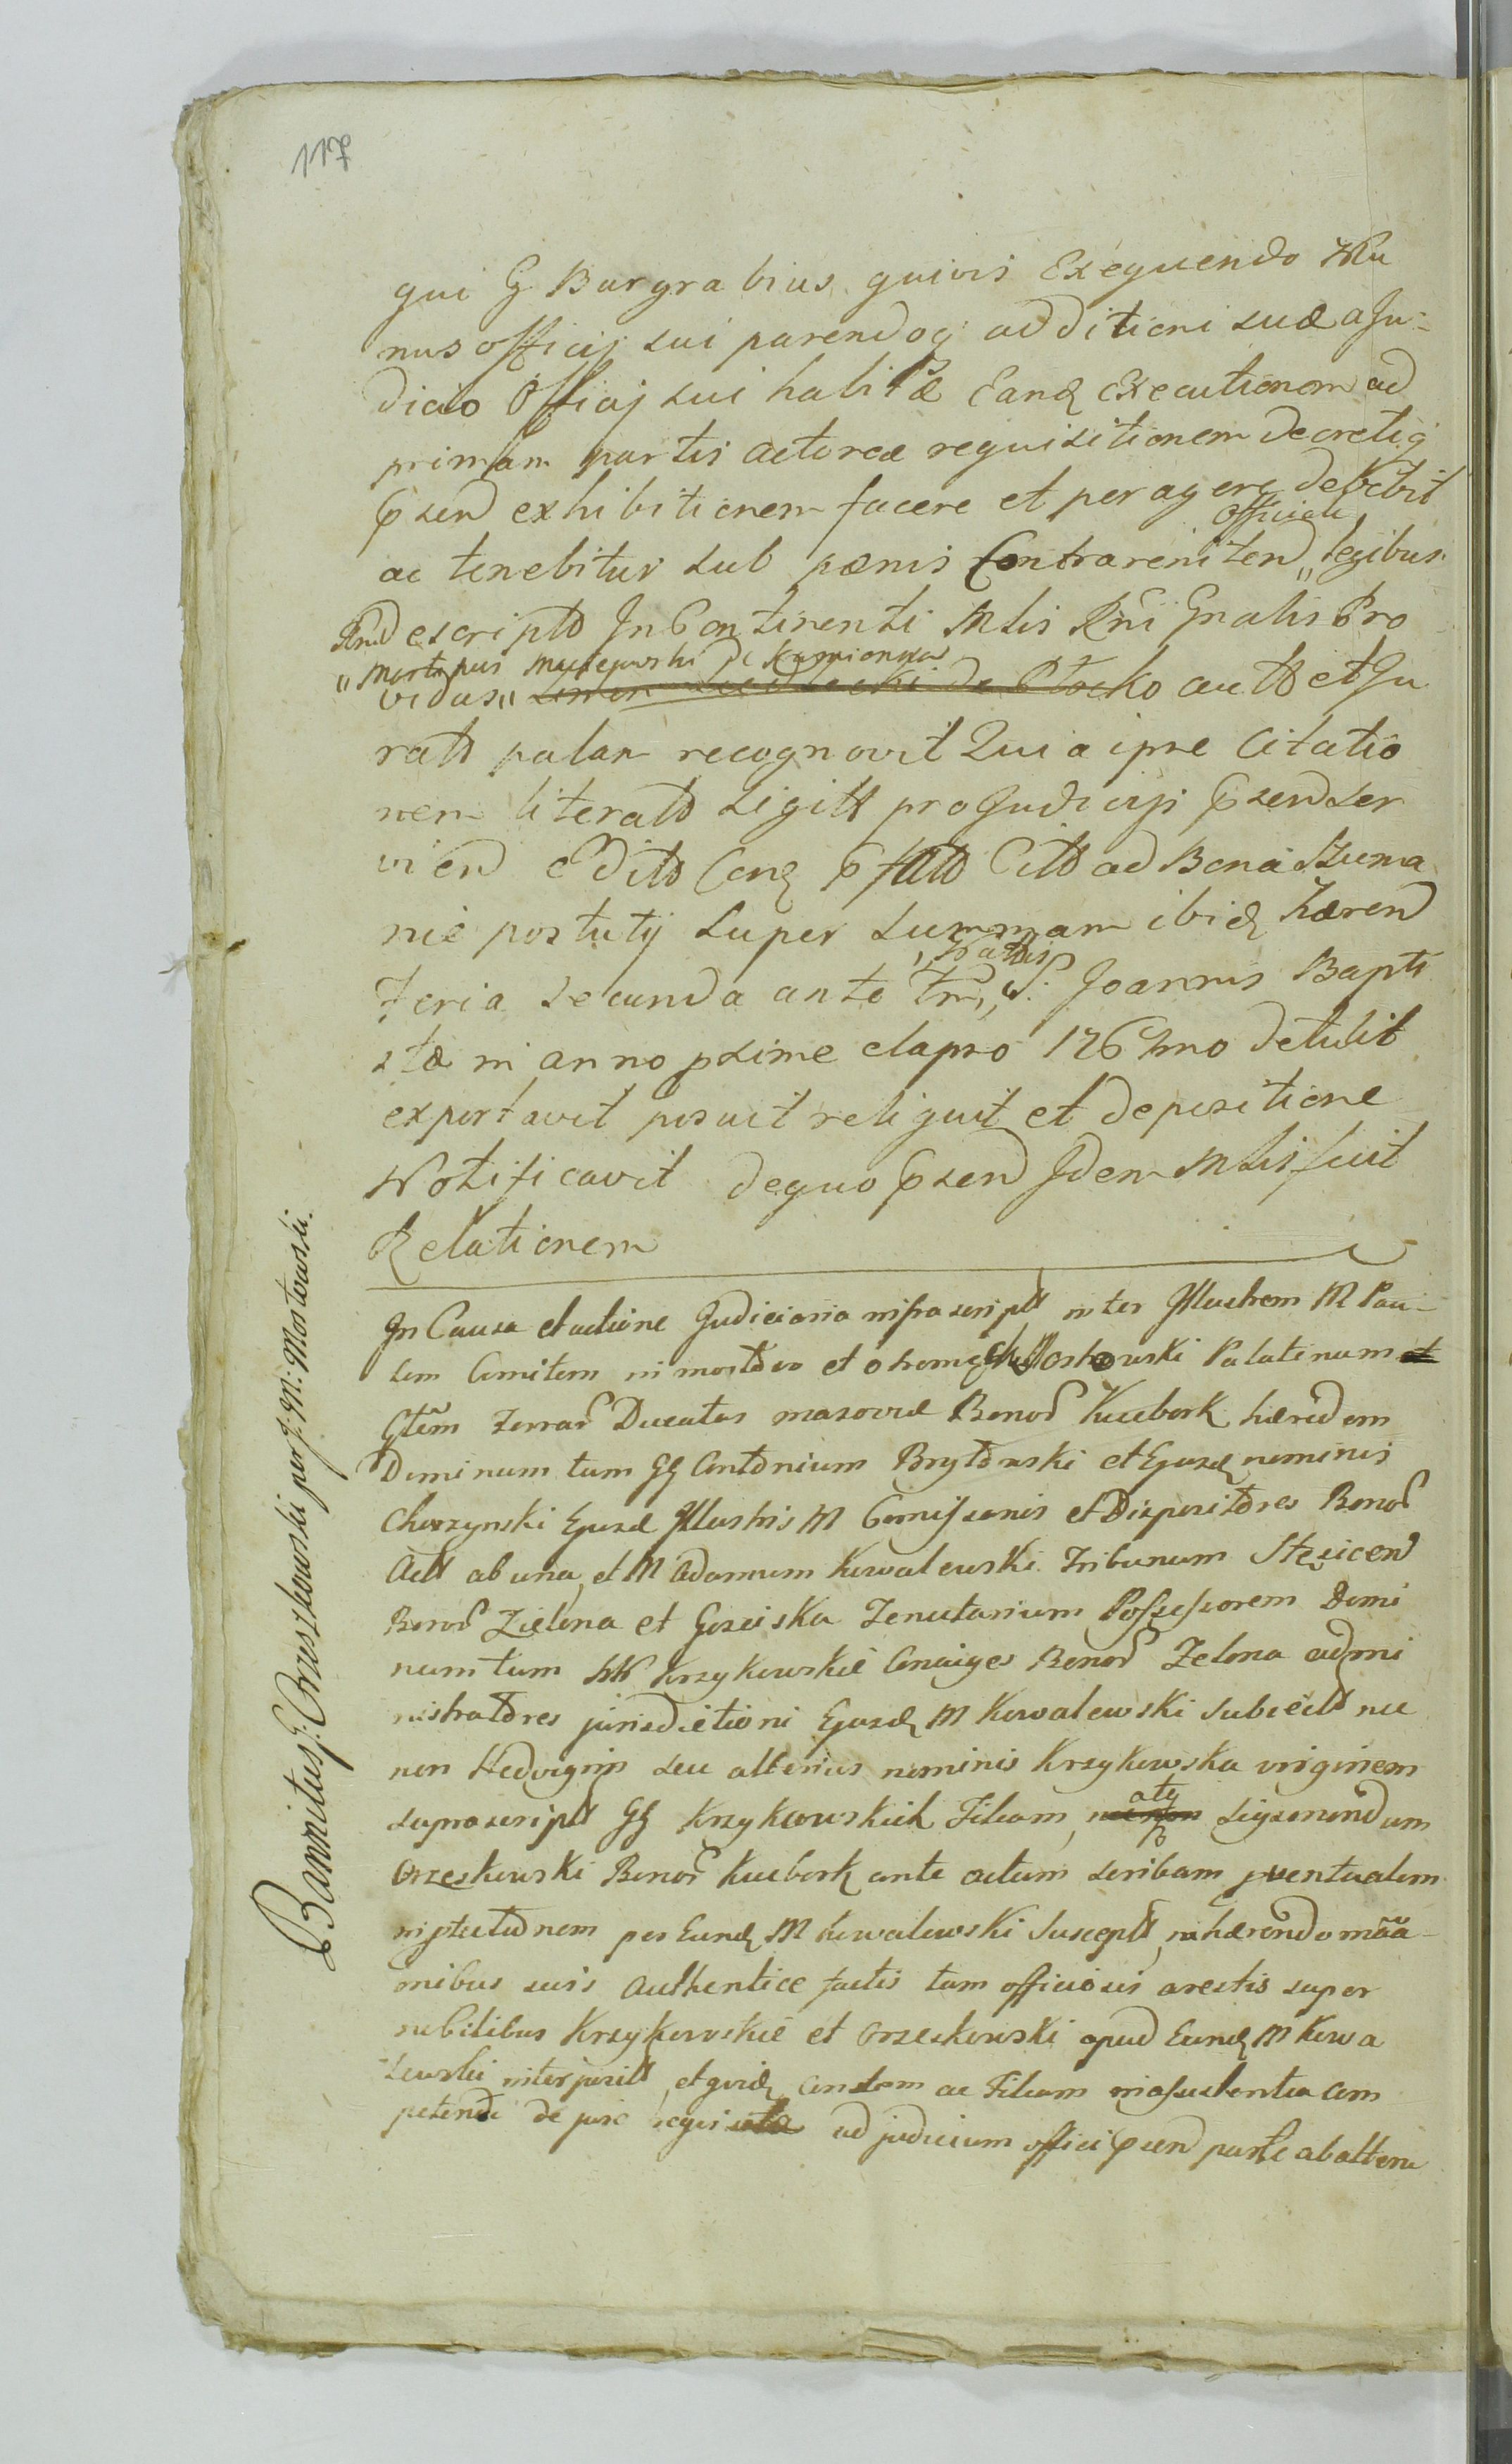 117
qui G Burgrabius quivis Exequendo Mu
nus officij sui parendoq additioni suæ a Ju-
dicio Officij sui habitæ Eandꝫ Executionem ad
primam partis actoreæ requisitionem decretiq
pꝛsend exhibitionem facere et peragere debebit
ac tenebitur sub pænis Contrareniten „ Officiale legibus
descripttd In Continenti Mtlis Rni Gnalis Pro
vidus „ Martinus Maciejowski de Kamionka autt et Ju
ratt palam recognovit Quia ipse Citatio
nem literatt Sigitt pro Judicijs pꝛsend Ser
vien editt Cenꝫ pfatt Citt ad Bona Szuma
nie postutij super summam ibidꝫ hæren
Feria secunda ante ffm „ Natlis S: Joannis Bapti
stæ in anno pꝛxime elapso 176 detulit
exportavit posuit reliquit et depositione
Notificavit dequo pꝛsend Idem Mlis fecit
Relationem
In Causa et actione Judiciaria infrascriptt inter Illustrem M Pau-
lum Comitem in mostow et Mostowski Palatinum
Gtem Terrar Ducatus masoviæ Bonor Kucbork hæredem
Dominum tum GG Antonium Brytowski et Ejusdꝫ nominis
Chorzynski Ejusd Illustris M Comissarios et Dispositores Bonor
Actt ab una et M Adamum Kowalewski Tribunum Stęzicen
Bonor Zielona et Gosciska Tenutarium Possessorem Domi
num tum NN Krzykowskie Conjuges Bonor Zelona admi
nistratores jurisdictioni Ejusdꝫ M Kowalewski Subiectt nec
non Hedvigim seu alterius nominis Krzykowska virginem
suprascriptt GG Krzykowskich Filiam, atq Sigismundum
Orzeskowski Bonor Kucbork ante actum scribam pventualem
per Eundꝫ M Kowalewski Susceptt, inhærendo
nibus suis Authentice factis tum officiosis arestis super
nobilibus Krzykowskie et Orzeskowski apud Eundꝫ M Kowa
lewski interpositt, et ac Filiam com
petenti de jure ad judicium offici pꝛsend parte ab altera
Bannitus G: Orzeszkowski per J: M: Mostowski.